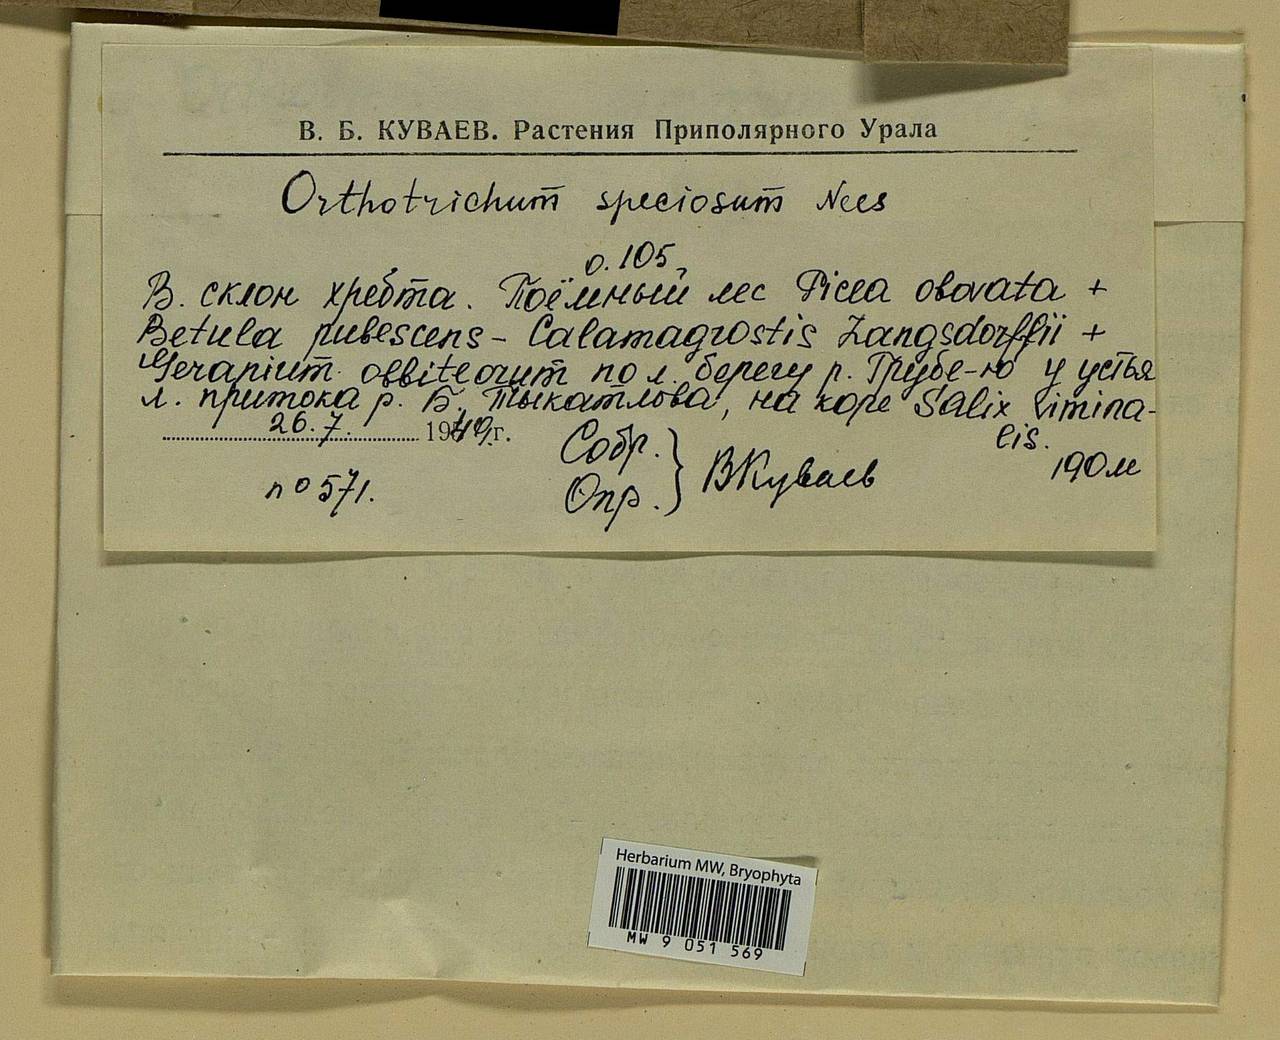 В. Б. КУВАЕВ. Растения Приполярного Урала
Orthotrichum speciosum Nees
о. 105,
В. склон хребта. Поёмный лес Picea obovata +
Betula pubescens - Calamagrostis Langsdorffii +
Geranium по л. берегу р. Грубе-ю у устья
л. притока р. Б. Тыкатлова, на коре Salix vimina-
lis.
26.7. 1949 г.
190 м
Собр.
Опр. } ВКуваев
no 571.
Herbarium MW, Bryophyta
MW 9 051 569